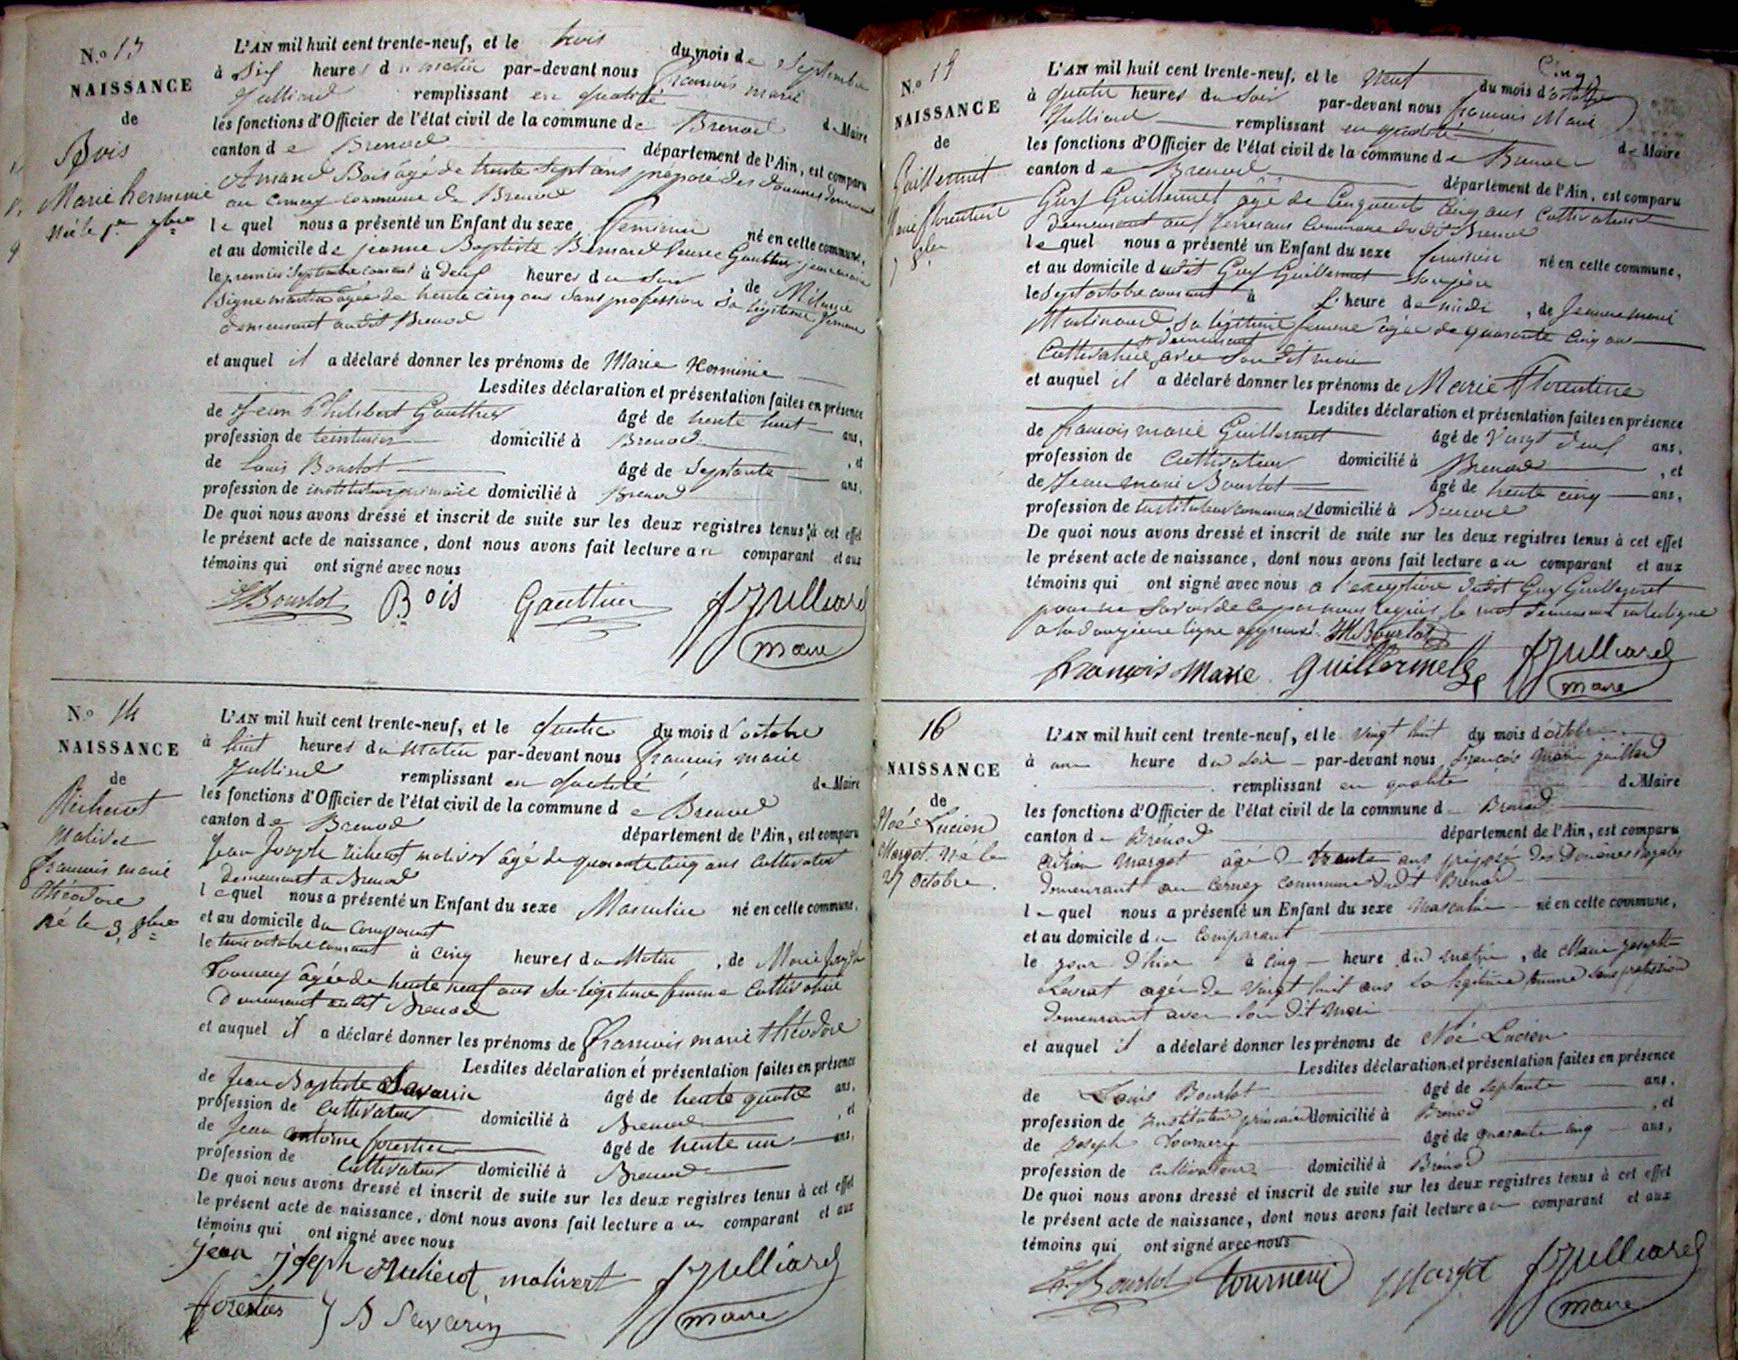 N.o 13
NAISSANCE
de
Bois
Marie herminie
Née le 1er 7bre
L'AN mil huit cent trente-neuf, et le trois du mois de Septembre
à Six heures du matin par-devant nous francois marie
Julliard remplissant en qualité de Maire
les fonctions d'Officier de l'état civil de la commune de Brenod
canton de Brenod département de l'Ain, est comparu
Amand Bois âgé de trente Sept ans préposé des douanes demeurant
au Cerney commune de Brenod
lequel nous a présenté un Enfant du sexe feminin né en cette commune,
et au domicile de jeanne Baptiste Bernard Veuve Gauthier
le premier Septembre courant à deux heures du Soir, de Mélanie
âgée de trente cinq ans Sans profession Sa légitime femme
demeurant audit Brenod
et auquel il a déclaré donner les prénoms de Marie Herminie
Lesdites déclaration et présentation faites en présence
de Jean Philibert Gauthier âgé de trente huit ans,
profession de teinturier domicilié à Brenod, et
de Louis Bourlot âgé de Septante ans,
profession de instituteur primaire domicilié à Brenod
De quoi nous avons dressé et inscrit de suite sur les deux registres tenus à cet effet
le présent acte de naissance, dont nous avons fait lecture au comparant et aux
témoins qui ont signé avec nous
Bourlot Bois Gauthier Julliard
maire
N.o 14
NAISSANCE
de
Richerot
Malivert
francois marie
théodore
né le 3 8bre
L'AN mil huit cent trente-neuf, et le quatre du mois d'octobre
à huit heures du Matin par-devant nous francois marie
Julliard remplissant en qualité de Maire
les fonctions d'Officier de l'état civil de la commune de Brenod
canton de Brenod département de l'Ain, est comparu
Jean Joseph Richerot malivert âgé de quarante cinq ans cultivateur
demeurant a Brenod
lequel nous a présenté un Enfant du sexe Masculin né en cette commune,
et au domicile du Comparant
le trois octobre courant à cinq heures du Matin, de Marie Josephte
Tournery âgée de trente neuf ans Sa légitime femme Cultivatrice
demeurant audit Brenod
et auquel il a déclaré donner les prénoms de francois marie théodore
Lesdites déclaration et présentation faites en présence
de Jean Baptiste Savarin âgé de trente quatre ans,
profession de Cultivateur domicilié à Brenod, et
de Jean antoine forestier âgé de trente un ans,
profession de Cultivateur domicilié à Brenod
De quoi nous avons dressé et inscrit de suite sur les deux registres tenus à cet effet
le présent acte de naissance, dont nous avons fait lecture au comparant et aux
témoins qui ont signé avec nous
jean joseph Richerot malivert Julliard
forestier J B Savarin maire
Cinq
N.o 15
NAISSANCE
de
Guillermet
Marie florentine
L'AN mil huit cent trente-neuf, et le neuf du mois d'octobre
à quatre heures du Soir par-devant nous francois Marie
Julliard remplissant en qualité de Maire
les fonctions d'Officier de l'état civil de la commune de Brenod
canton de Brenod département de l'Ain, est comparu
Guy Guillermet âgé de Cinquante Cinq ans Cultivateur
demeurant aux commune dudit Brenod
lequel nous a présenté un Enfant du sexe feminin né en cette commune,
et au domicile dudit Guy Guillermet Son père
le Sept octobre courant à l'heure de midi, de Jeanne marie
Martinand Sa légitime femme âgée de quarante cinq ans
demeurant
Cultivatrice avec Son dit mari
et auquel il a déclaré donner les prénoms de Marie Florentine
Lesdites déclaration et présentation faites en présence
de francois marie Guillermet âgé de Vingt deux ans,
profession de Cultivateur domicilié à Brenod, et
de Jean marie Bourlot âgé de trente cinq ans,
profession de instituteur communal domicilié à Brenod
De quoi nous avons dressé et inscrit de suite sur les deux registres tenus à cet effet
le présent acte de naissance, dont nous avons fait lecture au comparant et aux
témoins qui ont signé avec nous a l'exeption dudit Guy Guillermet
pour ne Savoir de ce par nous requis le mot demeurant interligne
a la douzieme ligne approuvé. JM Bourlot
françois Marie Guillermet Julliard
maire
16
NAISSANCE
de
Noé Lucien
Margot né le
27 octobre.
L'AN mil huit cent trente-neuf, et le vingt huit du mois d'octobre
à une heure du Soir par-devant nous François Marie julliard
remplissant en qualité de Maire
les fonctions d'Officier de l'état civil de la commune de Brenod
canton de Brénod département de l'Ain, est comparu
margot âgé de trente ans préposé des Douanes Royales
demeurant au cerney commune dudit Brenod
lequel nous a présenté un Enfant du sexe masculin né en cette commune,
et au domicile du Comparant
le jour d'hier à cinq heure du matin, de Marie josephte
Levrat agée de vingt huit ans Sa légitime femme Sans profession
demeurant avec Son dit mari
et auquel il a déclaré donner les prénoms de Noé Lucien
Lesdites déclaration et présentation faites en présence
de Louis Bourlot âgé de septante ans,
profession de instituteur primaire domicilié à Brenod, et
de Joseph Tournery âgé de quarante cinq ans,
profession de cultivateur domicilié à Brénod
De quoi nous avons dressé et inscrit de suite sur les deux registres tenus à cet effet
le présent acte de naissance, dont nous avons fait lecture au comparant et aux
témoins qui ont signé avec nous
Bourlot tourneri Margot Julliard
maire